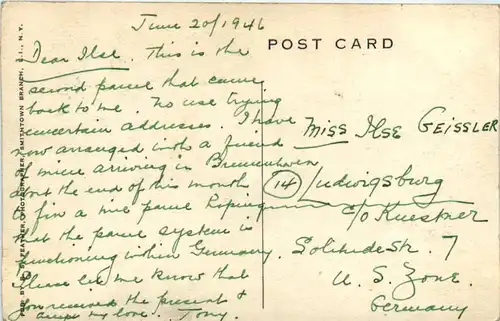 June 20/1946
POST CARD
Dear Ilse. This is the
second parcel that came
back to me. No use trying
uncertain addresses. I have
now arranged with a friend
of mine arriving in Bremenhaven
about the end of this month
to a parcel
that the parcel system is
functioning within Germany.
Please let me know that
you received the present &
accept my love. Tony.
Miss Ilse GEISSLER
(14) Ludwigsburg
c/o Kuestner
Solitudestr. 7
U. S. Zone.
Germany
PHOTOGRAPHER, SMITHTOWN BRANCH, L.I., N.Y.